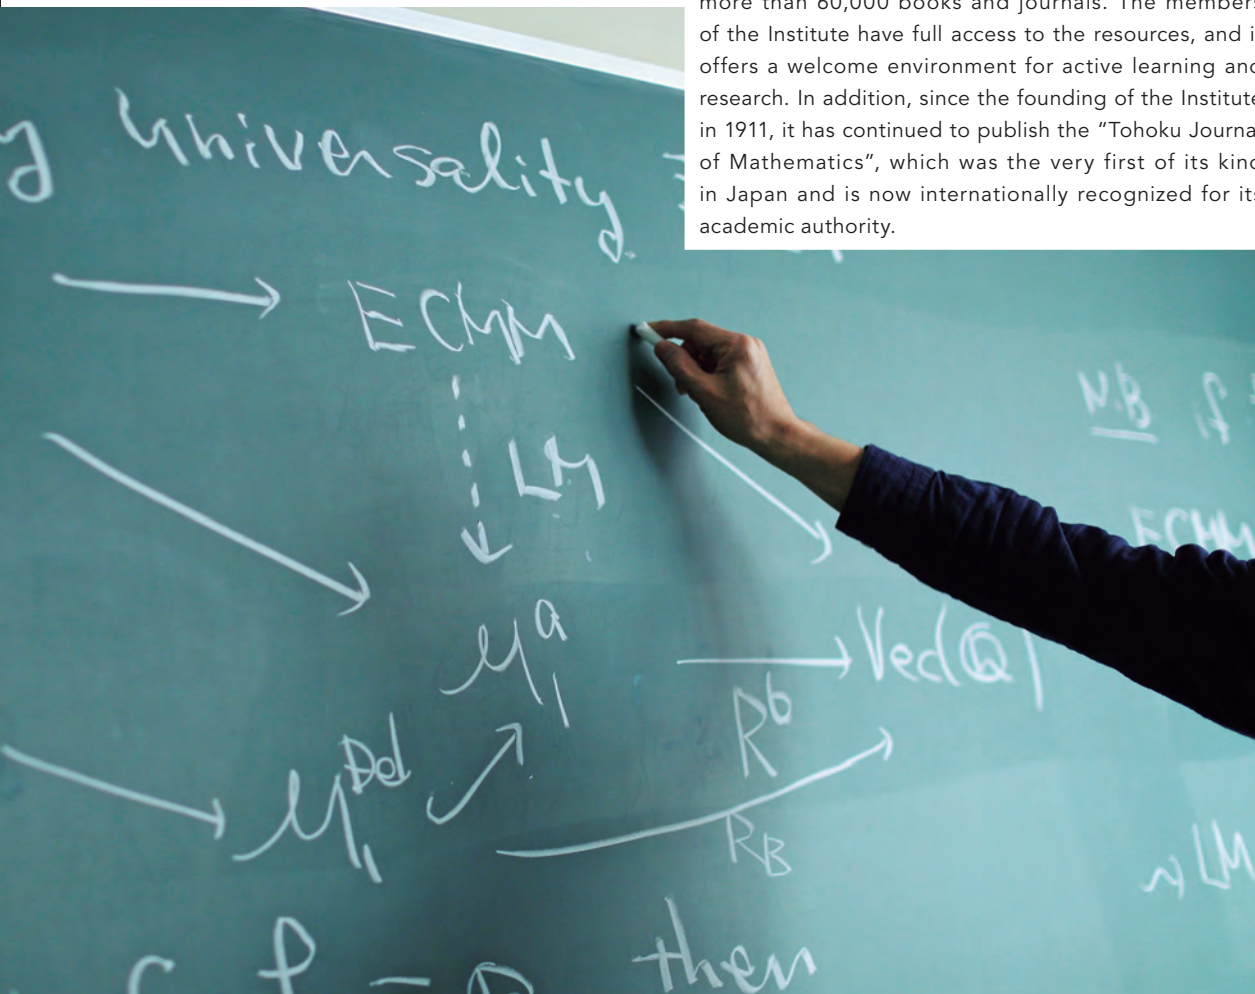 more than 60,000 books and journals. The members
of the Institute have full access to the resources, and i
offers a welcome environment for active learning and
research. In addition, since the founding of the Institute
in 1911, it has continued to publish the “Tohoku Journa
of Mathematics”, which was the very first of its kind
in Japan and is now internationally recognized for its
academic authority.
y universality
ECMM
N.B if
LM
ECMM
M₁ᵃ
Vec(Q)
Rᵇ
M₁ᴰᵉˡ
R_B
~) LM
then